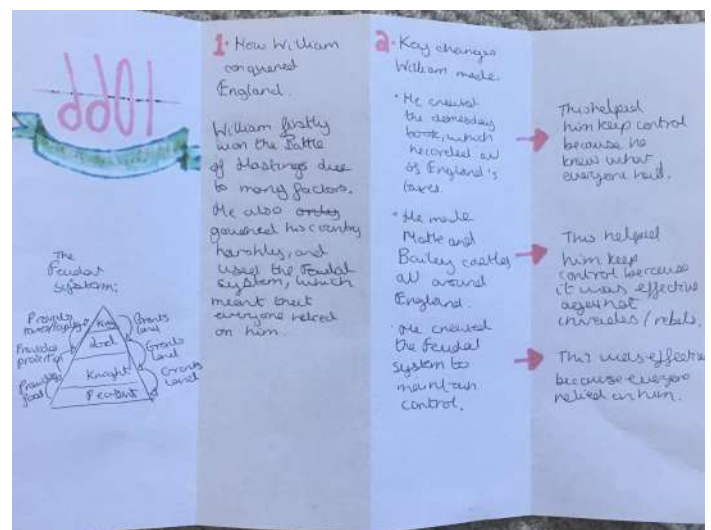 1066
The
Feudal
system:
King
Lord
Knight
Peasant
Grants
land
Grants
land
Grants
land
Provides
Provides
protection
Provides
food
1. How William
conquered
England.
William firstly
won the Battle
of Hastings due
to many factors.
He also
governed his country
harshly, and
used the Feudal
system, which
meant that
everyone relied
on him.
2. Key changes
William made.
• He created
the domesday
book, which
recorded all
of England's
taxes.
• He made
Motte and
Bailey castles
all around
England.
• He created
the Feudal
system to
maintain
control.
This helped
him keep control
because he
knew what
everyone had.
This helped
him keep
control because
it was effective
against
invades / rebels.
This was effective
because everyone
relied on him.